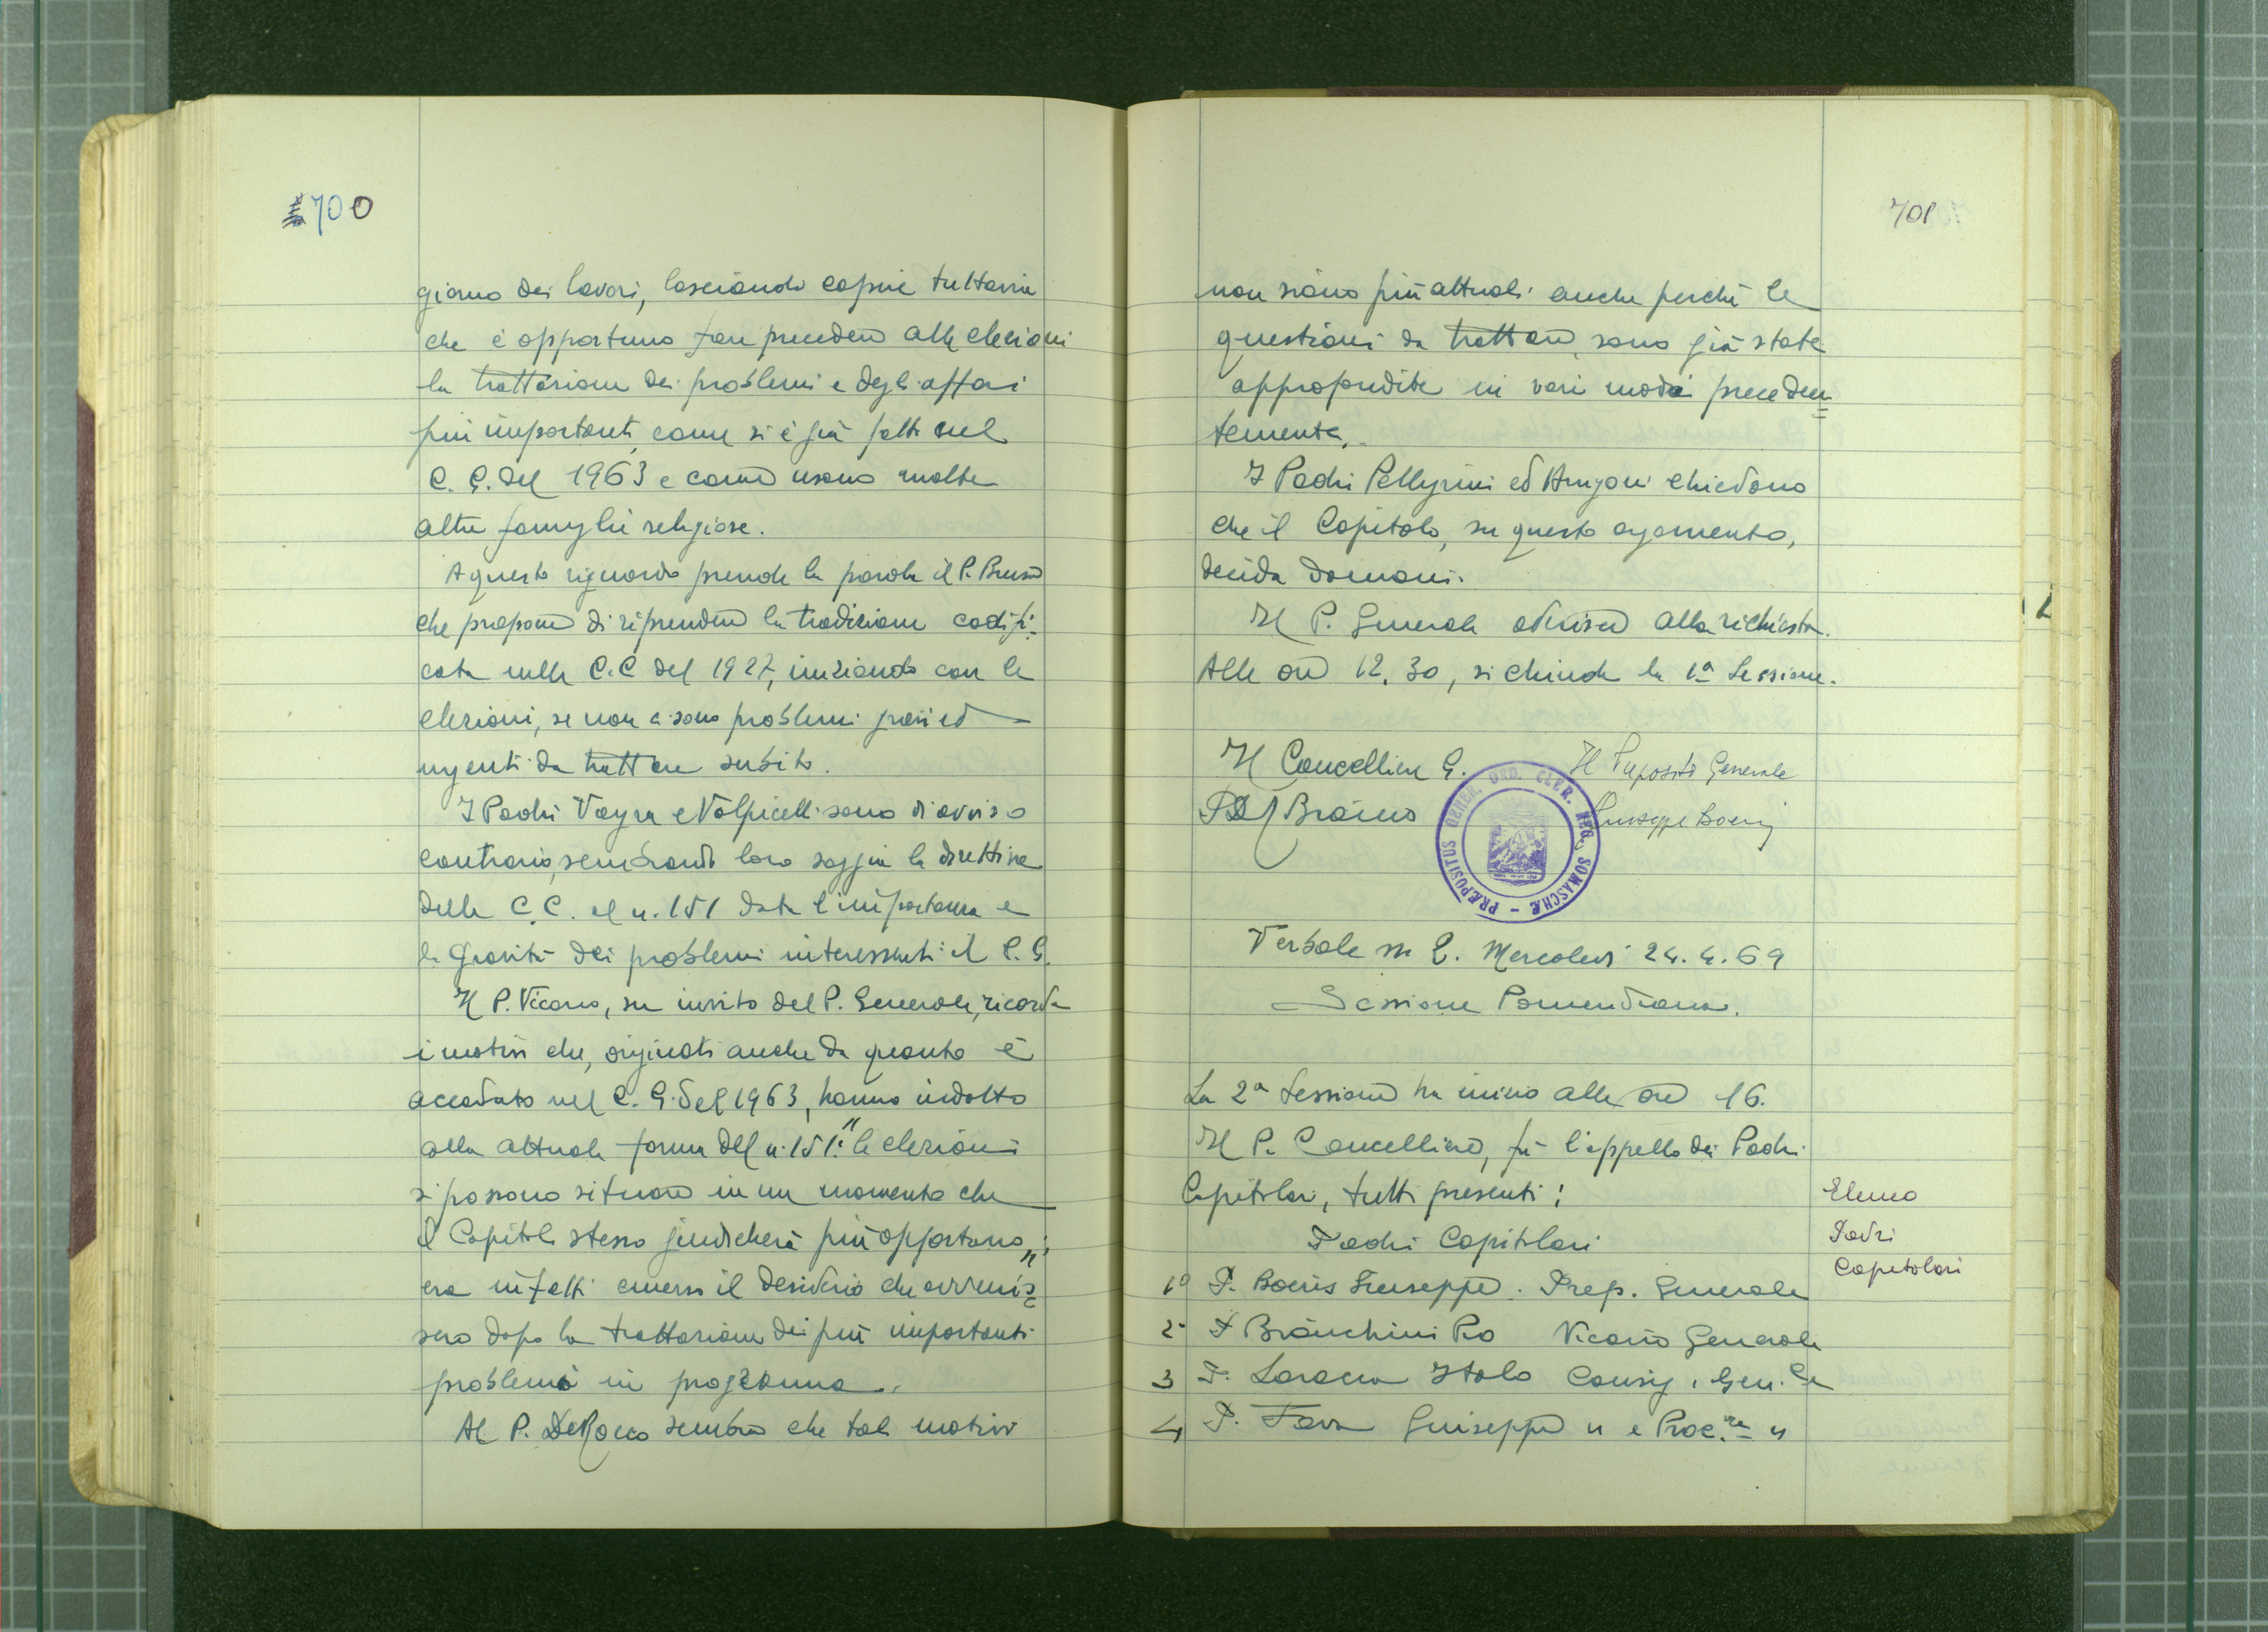 700
giorno dei lavori, lasciando capire tuttavia
che è opportuno fare precedere alle elezioni
la trattazione dei problemi e degli affari
più importanti, come si è già fatto nel
C. G. del 1963 e come usano molte
altre famiglie religiose.
A questo riguardo prende la parola il P.
che propone di riprendere la tradizione codifi=
cata nelle C.C del 1927, iniziando con le
elezioni, se non ci sono problemi gravi ed
urgenti da trattare subito.
I Padri Vayra e Volpicelli sono di avviso
contrario, sembrando loro saggia la direttiva
delle C.C. al n. 151 data l'importanza e
la gravità dei problemi interessanti il C. G.
Il P. Vicario, su invito del P. Generale, ricorda
i motivi che, originati anche da quanto è
accaduto nel C. G. del 1963, hanno indotto
alla attuale forma del n. 151: "le elezioni
si possono situare in un momento che
il Capitolo stesso giudicherà più opportuno";
era infatti emerso il desiderio che avvenis=
sero dopo la trattazione dei più importanti
problemi in programma.
Al P. De Rocco sembra che tali motivi
701
non siano più attuali anche perché le
questioni da trattare, sono già state
approfondite in vari modi preceden=
temente.
I Padri Pellegrini ed Arrigoni chiedono
che il Capitolo, su questo argomento,
decida domani.
Il P. Generale aderisce alla richiesta.
Alle ore 12.30, si chiude la 1a Sessione.
Il Cancelliere G. Il Preposito Generale
Giuseppe Boeris
PRÆPOSITUS GENER. ORD. CLER. REG. SOMASCHÆ -
Verbale n 2. Mercoledì 24.4.69
Sessione Pomeridiana.
La 2a Sessione ha inizio alle ore 16.
Il P. Cancelliere, fa l'appello dei Padri
Capitolari, tutti presenti:
Elenco
Padri
Capitolari
Padri Capitolari
1º P. Boeris Giuseppe. Prep. Generale
2º P Bianchini Pio Vicario Generale
3 P. Laracca Italo Consig. Gen.le
4 P. Fava Giuseppe " e Proc.re "